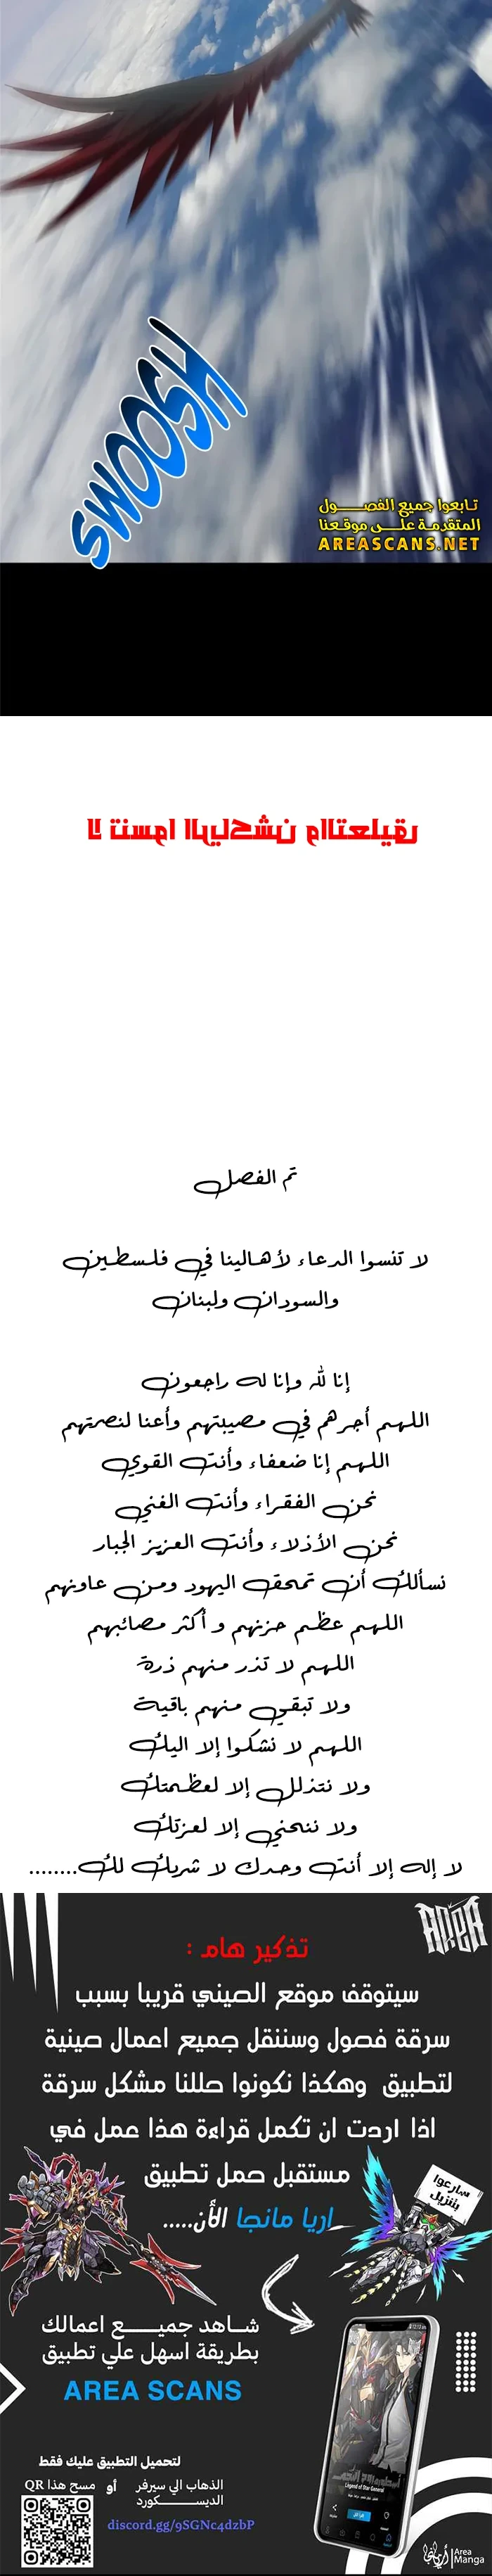 SWOOSH
تابعوا جميع الفصــول
المتقدمة علــى موقعنا
AREASCANS.NET
لا تنسوا الريأكشن والتعليق
تم الفصل
لا تنسوا الدعاء لأهالينا في فلسطين
والسودان ولبنان
إنا لله وإنا له راجعون
اللهم أجرهم في مصيبتهم وأعنا لنصرتهم
اللهم إنا ضعفاء وأنت القوي
نحن الفقراء وأنت الغني
نحن الأذلاء وأنت العزيز الجبار
نسألك أن تمحق اليهود ومن عاونهم
اللهم عظم حزنهم و أكثر مصائبهم
اللهم لا تذر منهم ذرة
ولا تبقي منهم باقية
اللهم لا نشكوا إلا اليك
ولا نتذلل إلا لعظمتك
ولا ننحني إلا لعزتك
لا إله إلا أنت وحدك لا شريك لك........
AREA
تذكير هام :
سيتوقف موقع الصيني قريبا بسبب
سرقة فصول وسننقل جميع اعمال صينية
لتطبيق وهكذا نكونوا حللنا مشكل سرقة
اذا اردت ان تكمل قراءة هذا عمل في
مستقبل حمل تطبيق
اريا مانجا الأن.....
سارعوا
بتنزيل
شــاهد جميــــع اعمالك
بطريقة اسهل علي تطبيق
AREA SCANS
لتحميل التطبيق عليك فقط
الذهاب الي سيرفر
الديســــكورد
أو
مسح هذا QR
discord.gg/9SGNc4dzbP
Legend of Star General
Area
Manga